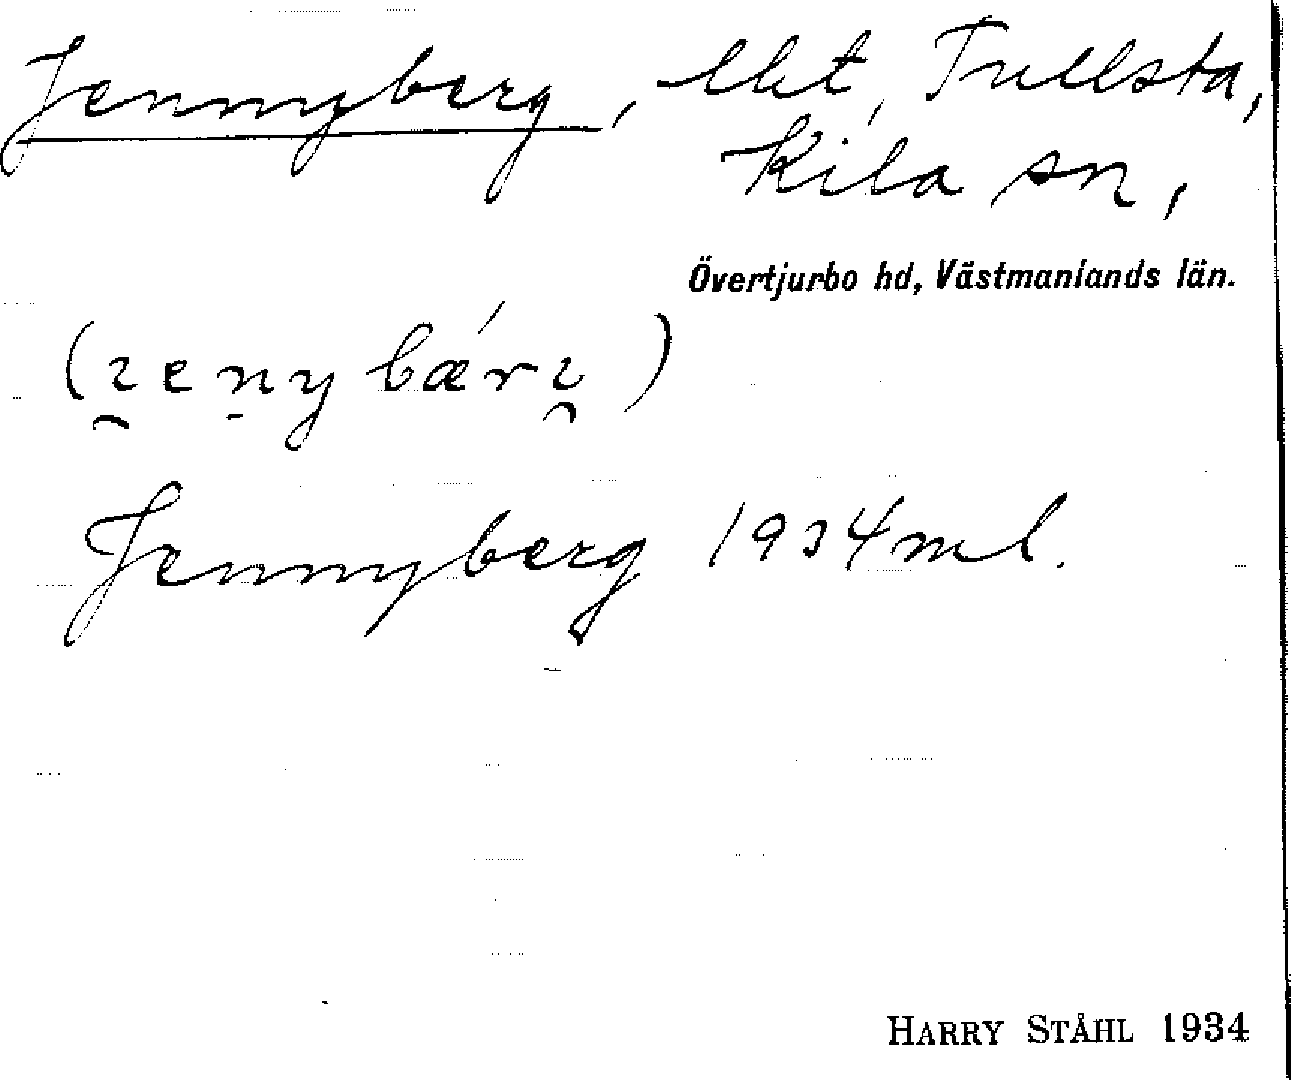 Jennyberg, lht, Tullsta,
Kila sn,
Övertjurbo hd, Västmanlands län.
Jennyberg 1934 ml.
HARRY STÅHL 1934